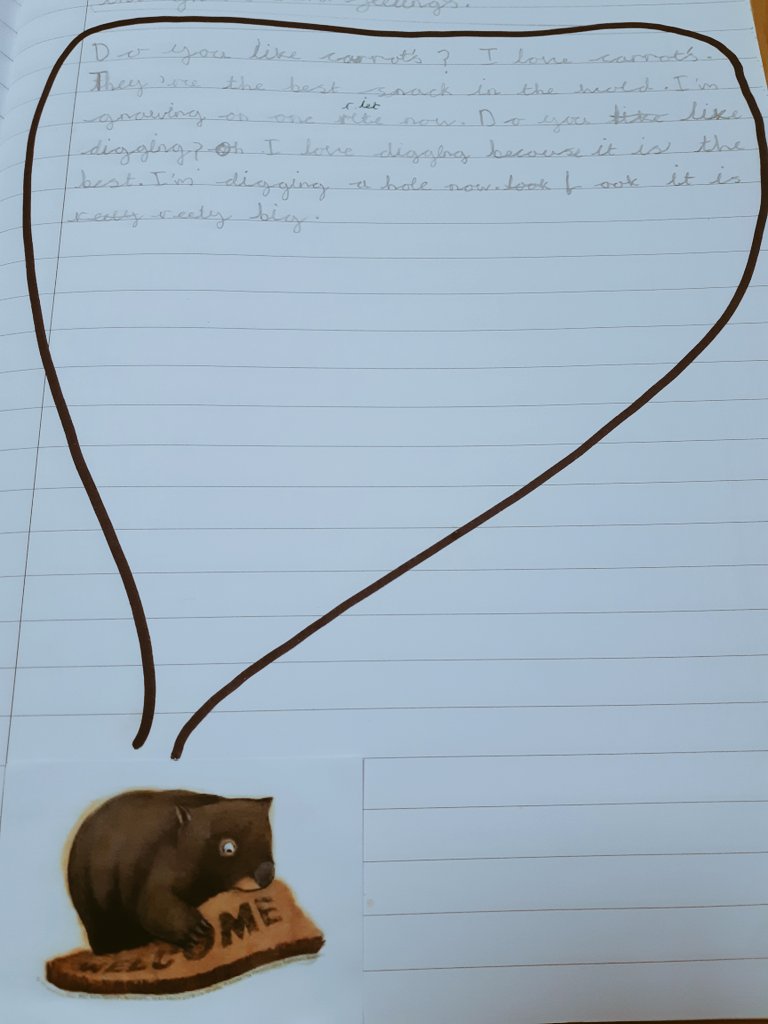 feelings.
Do you like carrots? I love carrots.
They're the best snack in the world. I'm
r let
gnawing on one rite now. Do you like like
digging? Oh I love digging because it is the
best. I'm digging a hole now. look Look it is
really reely big.
WELCOME